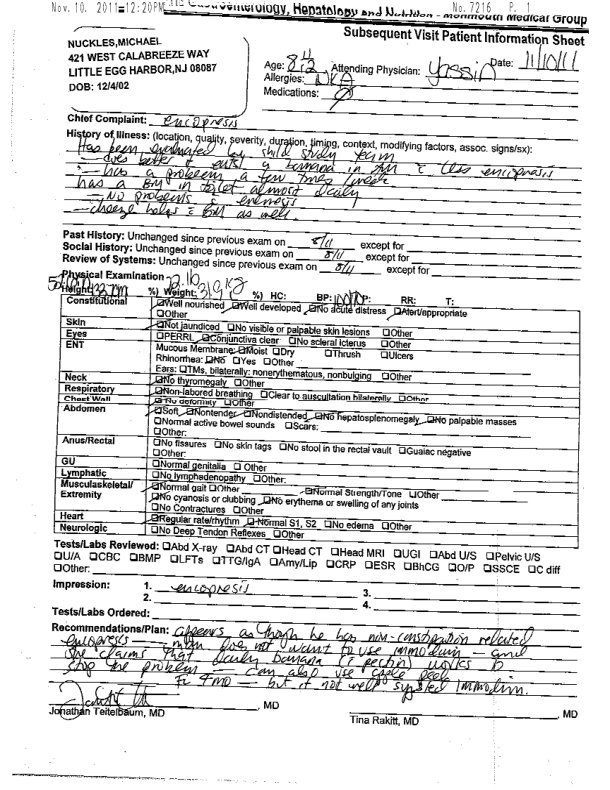 Nov. 10. 2011 12:20PM Gastroenterology, Hepatology and Nutrition - Monmouth Medical Group No. 7216 P. 1
Subsequent Visit Patient Information Sheet
NUCKLES,MICHAEL
421 WEST CALABREEZE WAY
LITTLE EGG HARBOR,NJ 08087
DOB: 12/4/02
Age: 8 Attending Physician: Yassin Date: 11/10/11
Allergies: NKA
Medications:
Chief Complaint: encopresis
History of Illness: (location, quality, severity, duration, timing, context, modifying factors, assoc. signs/sx):
Has been evaluated by child study team
- does better if eats a banana in AM c less encopresis
- has a problem a few times /week
has a BM in toilet almost daily
- No problems c enuresis
- cheese helps c BM as well.
Past History: Unchanged since previous exam on 8/11 except for
Social History: Unchanged since previous exam on 8/11 except for
Review of Systems: Unchanged since previous exam on 8/11 except for
Physical Examination -
Height: %) Weight: 31.9 kg %) HC: BP: P: RR: T:
Constitutional ☐Well nourished ☐Well developed ☐No acute distress ☐Alert/appropriate
☐Other
Skin ☐Not jaundiced ☐No visible or palpable skin lesions ☐Other
Eyes ☐PERRL ☐Conjunctiva clear ☐No scleral icterus ☐Other
ENT Mucous Membrane: ☐Moist ☐Dry ☐Thrush ☐Ulcers
Rhinorrhea: ☐No ☐Yes ☐Other
Ears: ☐TMs, bilaterally: nonerythematous, nonbulging ☐Other
Neck ☐No thyromegaly ☐Other
Respiratory ☐Non-labored breathing ☐Clear to auscultation bilaterally ☐Other
Chest Wall ☐No deformity ☐Other
Abdomen ☐Soft ☐Nontender ☐Nondistended ☐No hepatosplenomegaly ☐No palpable masses
☐Normal active bowel sounds ☐Scars:
☐Other:
Anus/Rectal ☐No fissures ☐No skin tags ☐No stool in the rectal vault ☐Guaiac negative
☐Other:
GU ☐Normal genitalia ☐Other
Lymphatic ☐No lymphedenopathy ☐Other:
Musculoskeletal/ ☐Normal gait ☐Other ☐Normal Strength/Tone ☐Other
Extremity ☐No cyanosis or clubbing ☐No erythema or swelling of any joints
☐No Contractures ☐Other
Heart ☐Regular rate/rhythm ☐Normal S1, S2 ☐No edema ☐Other
Neurologic ☐No Deep Tendon Reflexes ☐Other
Tests/Labs Reviewed: ☐Abd X-ray ☐Abd CT ☐Head CT ☐Head MRI ☐UGI ☐Abd U/S ☐Pelvic U/S
☐U/A ☐CBC ☐BMP ☐LFTs ☐TTG/IgA ☐Amy/Lip ☐CRP ☐ESR ☐BhCG ☐O/P ☐SSCE ☐C diff
☐Other:
Impression: 1. encopresis 3.
2. 4.
Tests/Labs Ordered:
Recommendations/Plan: appears as though he has non-constipation related
encopresis - mom does not want to use immodium - and
she claims that daily banana (i pectin) works to
stop the problem - can also use apple peel
F/u 4 mo - but if not well suggested immodium.
, MD , MD
Jonathan Teitelbaum, MD Tina Rakitt, MD